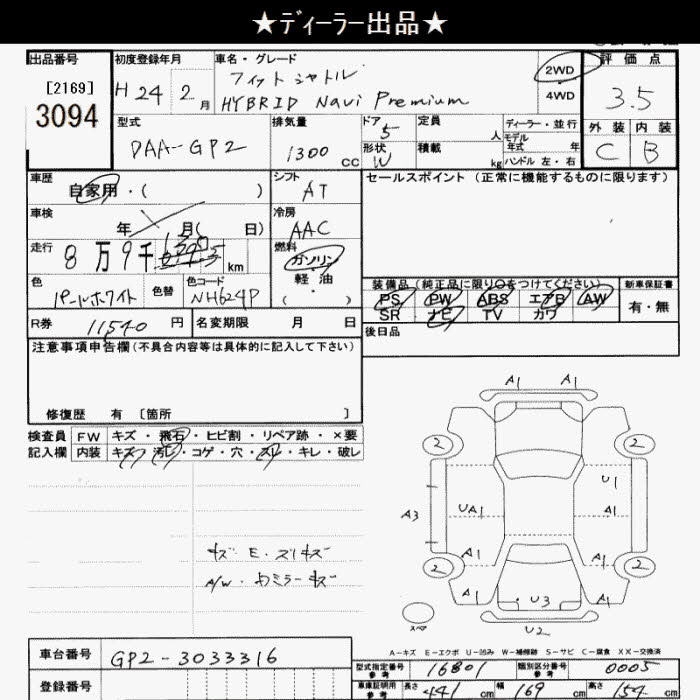 ★ディーラー出品★
出品番号 初度登録年月 車名・グレード 評価点
[2169] H 24 2月 フィットシャトル 2WD
3094 HYBRID Navi Premium 4WD 3.5
型式 排気量 ドア 5 定員 人 ディーラー・並行 外装 内装
DAA-GP2 1300 cc 形状 W 積載 kg モデル年式 年 C B
ハンドル 左・右
車歴 シフト セールスポイント (正常に機能するものに限ります)
自家用・( ) AT
車検 年 月( 日) 冷房
AAC
走行 8万9千 km 燃料
ガソリン
色 色替 色コード 軽・油
パールホワイト NH624P ( )
装備品 (純正品に限り○をつけてください) 新車保証書
PS PW ABS エアB AW 有・無
SR ナビ TV カワ
R券 11540 円 名変期限 月 日 後日品
注意事項申告欄(不具合内容等は具体的に記入して下さい)
修復歴 有 [箇所 ]
検査員 FW キズ・飛石・ヒビ割・リペア跡・×要
記入欄 内装 キズ・汚レ・コゲ・穴・スレ・キレ・破レ
A1 A1
2 2
U1
A3 UA1 A1
A1 A1
2 2
A1 U3 A1
スペア U2
キズ E・スリキズ
A/W・ミラーキズ
A-キズ E-エクボ U-凹み W-補修跡 S-サビ C-腐食 XX-交換済
車台番号 GP2-3033316
型式指定番号 参考 16801 類別区分番号 参考 0005
登録番号
車庫証明用 参考 長さ 441 cm 幅 169 cm 高さ 154 cm